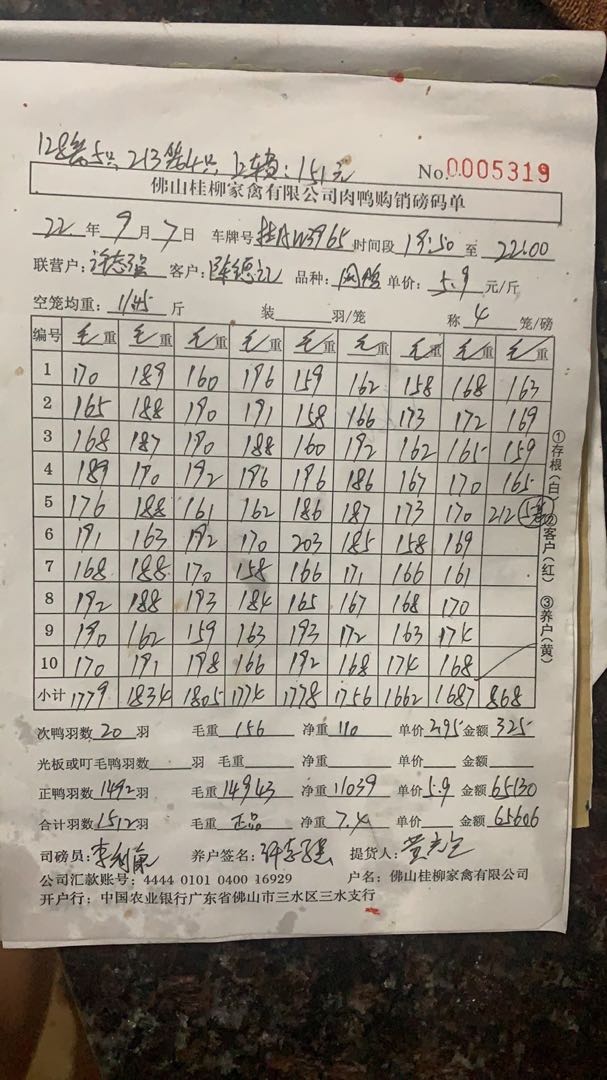 128笼5只 213笼4只 上车费：151元
No.0005319
佛山桂柳家禽有限公司肉鸭购销磅码单
22 年 9 月 7 日 车牌号 桂AW3965 时间段 19:50 至 22:00
联营户：许志强 客户：陈德江 品种： 单价：5.9 元/斤
空笼均重：11.45 斤 装 羽/笼 称 4 笼/磅
编号 毛重 毛重 毛重 毛重 毛重 毛重 毛重 毛重 毛重
1 170 189 160 196 159 162 158 168 163
2 165 188 190 191 158 166 173 172 169
3 168 187 190 188 160 192 162 165 159
4 189 190 192 196 196 186 167 170 165
5 176 188 161 162 186 187 173 170 212 5笼
6 191 163 192 170 203 185 158 169
7 168 188 170 158 166 171 166 161
8 192 188 193 184 165 167 168 170
9 190 162 159 163 193 172 163 174
10 170 191 198 166 192 168 174 168
小计 1779 1834 1805 1774 1778 1756 1662 1687 868
①存根（白）②客户（红）③养户（黄）
次鸭羽数 20 羽 毛重 156 净重 110 单价 2.95 金额 325
光板或叮毛鸭羽数 羽 毛重 净重 单价 金额
正鸭羽数 1492 羽 毛重 14943 净重 11039 单价 5.9 金额 65130
合计羽数 1512 羽 毛重 正品 净重 7.4 单价 金额 65606
司磅员： 养户签名：许志强 提货人：
公司汇款账号：4444 0101 0400 16929 户名：佛山桂柳家禽有限公司
开户行：中国农业银行广东省佛山市三水区三水支行